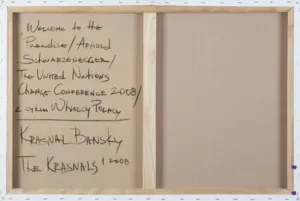 "Welcome to the
Paradise/Arnold
Schwarzenegger/
The United Nations
Change Conference 2008/
z cyklu Whielcy Polacy
Krasnal Bansky
The Krasnals 2008